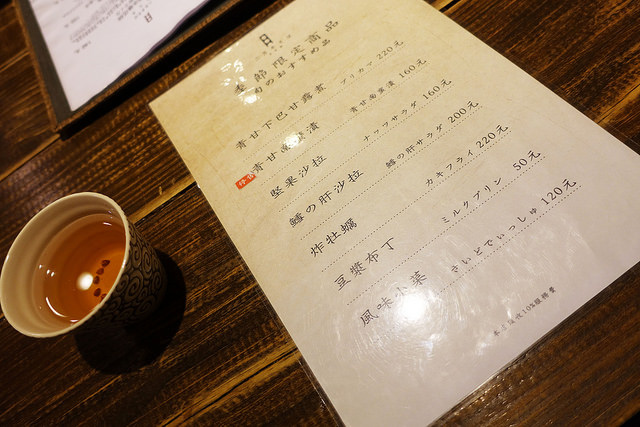 季節限定商品
旬のおすすめ品
青甘下巴甘露煮 ブリカマ 220元
青甘南蠻漬 青甘南蛮漬 160元
堅果沙拉 ナッツサラダ 160元
鱈の肝沙拉 鱈の肝サラダ 200元
炸牡蠣 カキフライ 220元
豆漿布丁 ミルクプリン 50元
風味小菜 さいとでいっしゅ 120元
本店強收10%服務費